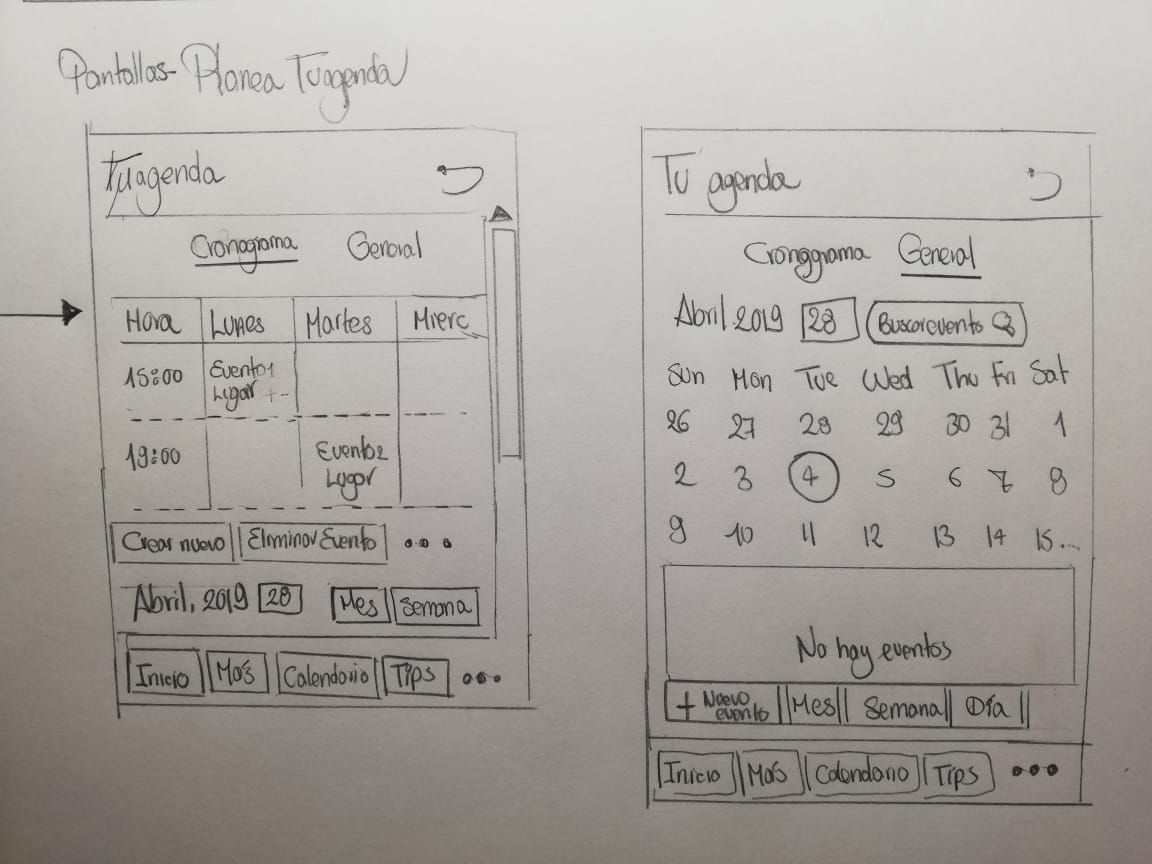 Pantallas- Planea Tuagenda
Tuagenda
Cronograma General
Hora Lunes Martes Mierc
15:00 Evento1
Lugar +-
19:00 Evento2
Lugar
Crear nuevo Eliminar Evento ...
Abril, 2019 28 Mes Semana
Inicio Más Calendario Tips ...
Tu agenda
Cronggrama General
Abril 2019 28 Buscar evento
Sun Mon Tue Wed Thu Fri Sat
26 27 28 29 30 31 1
2 3 4 5 6 7 8
9 10 11 12 13 14 15...
No hay eventos
+ Nuevo
evento Mes Semana Día
Inicio Más Calendario Tips ...